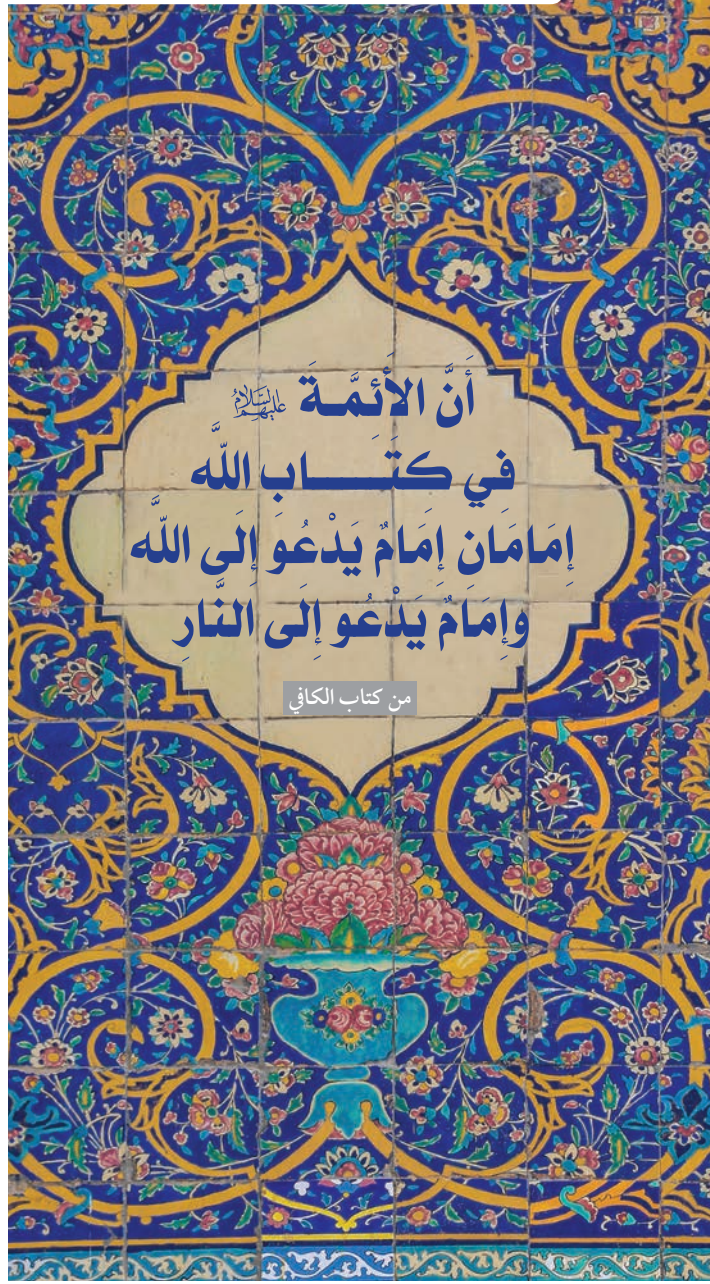 أَنَّ الأَئِمَّـةَ عَلَيْهِمُ السَّلَامُ
في كتَـــــاب اللَّه
إِمَامَان إِمَامٌ يَدْعُو إِلَى اللَّه
وإِمَامٌ يَدْعُو إِلَى النَّارِ
من كتاب الكافي